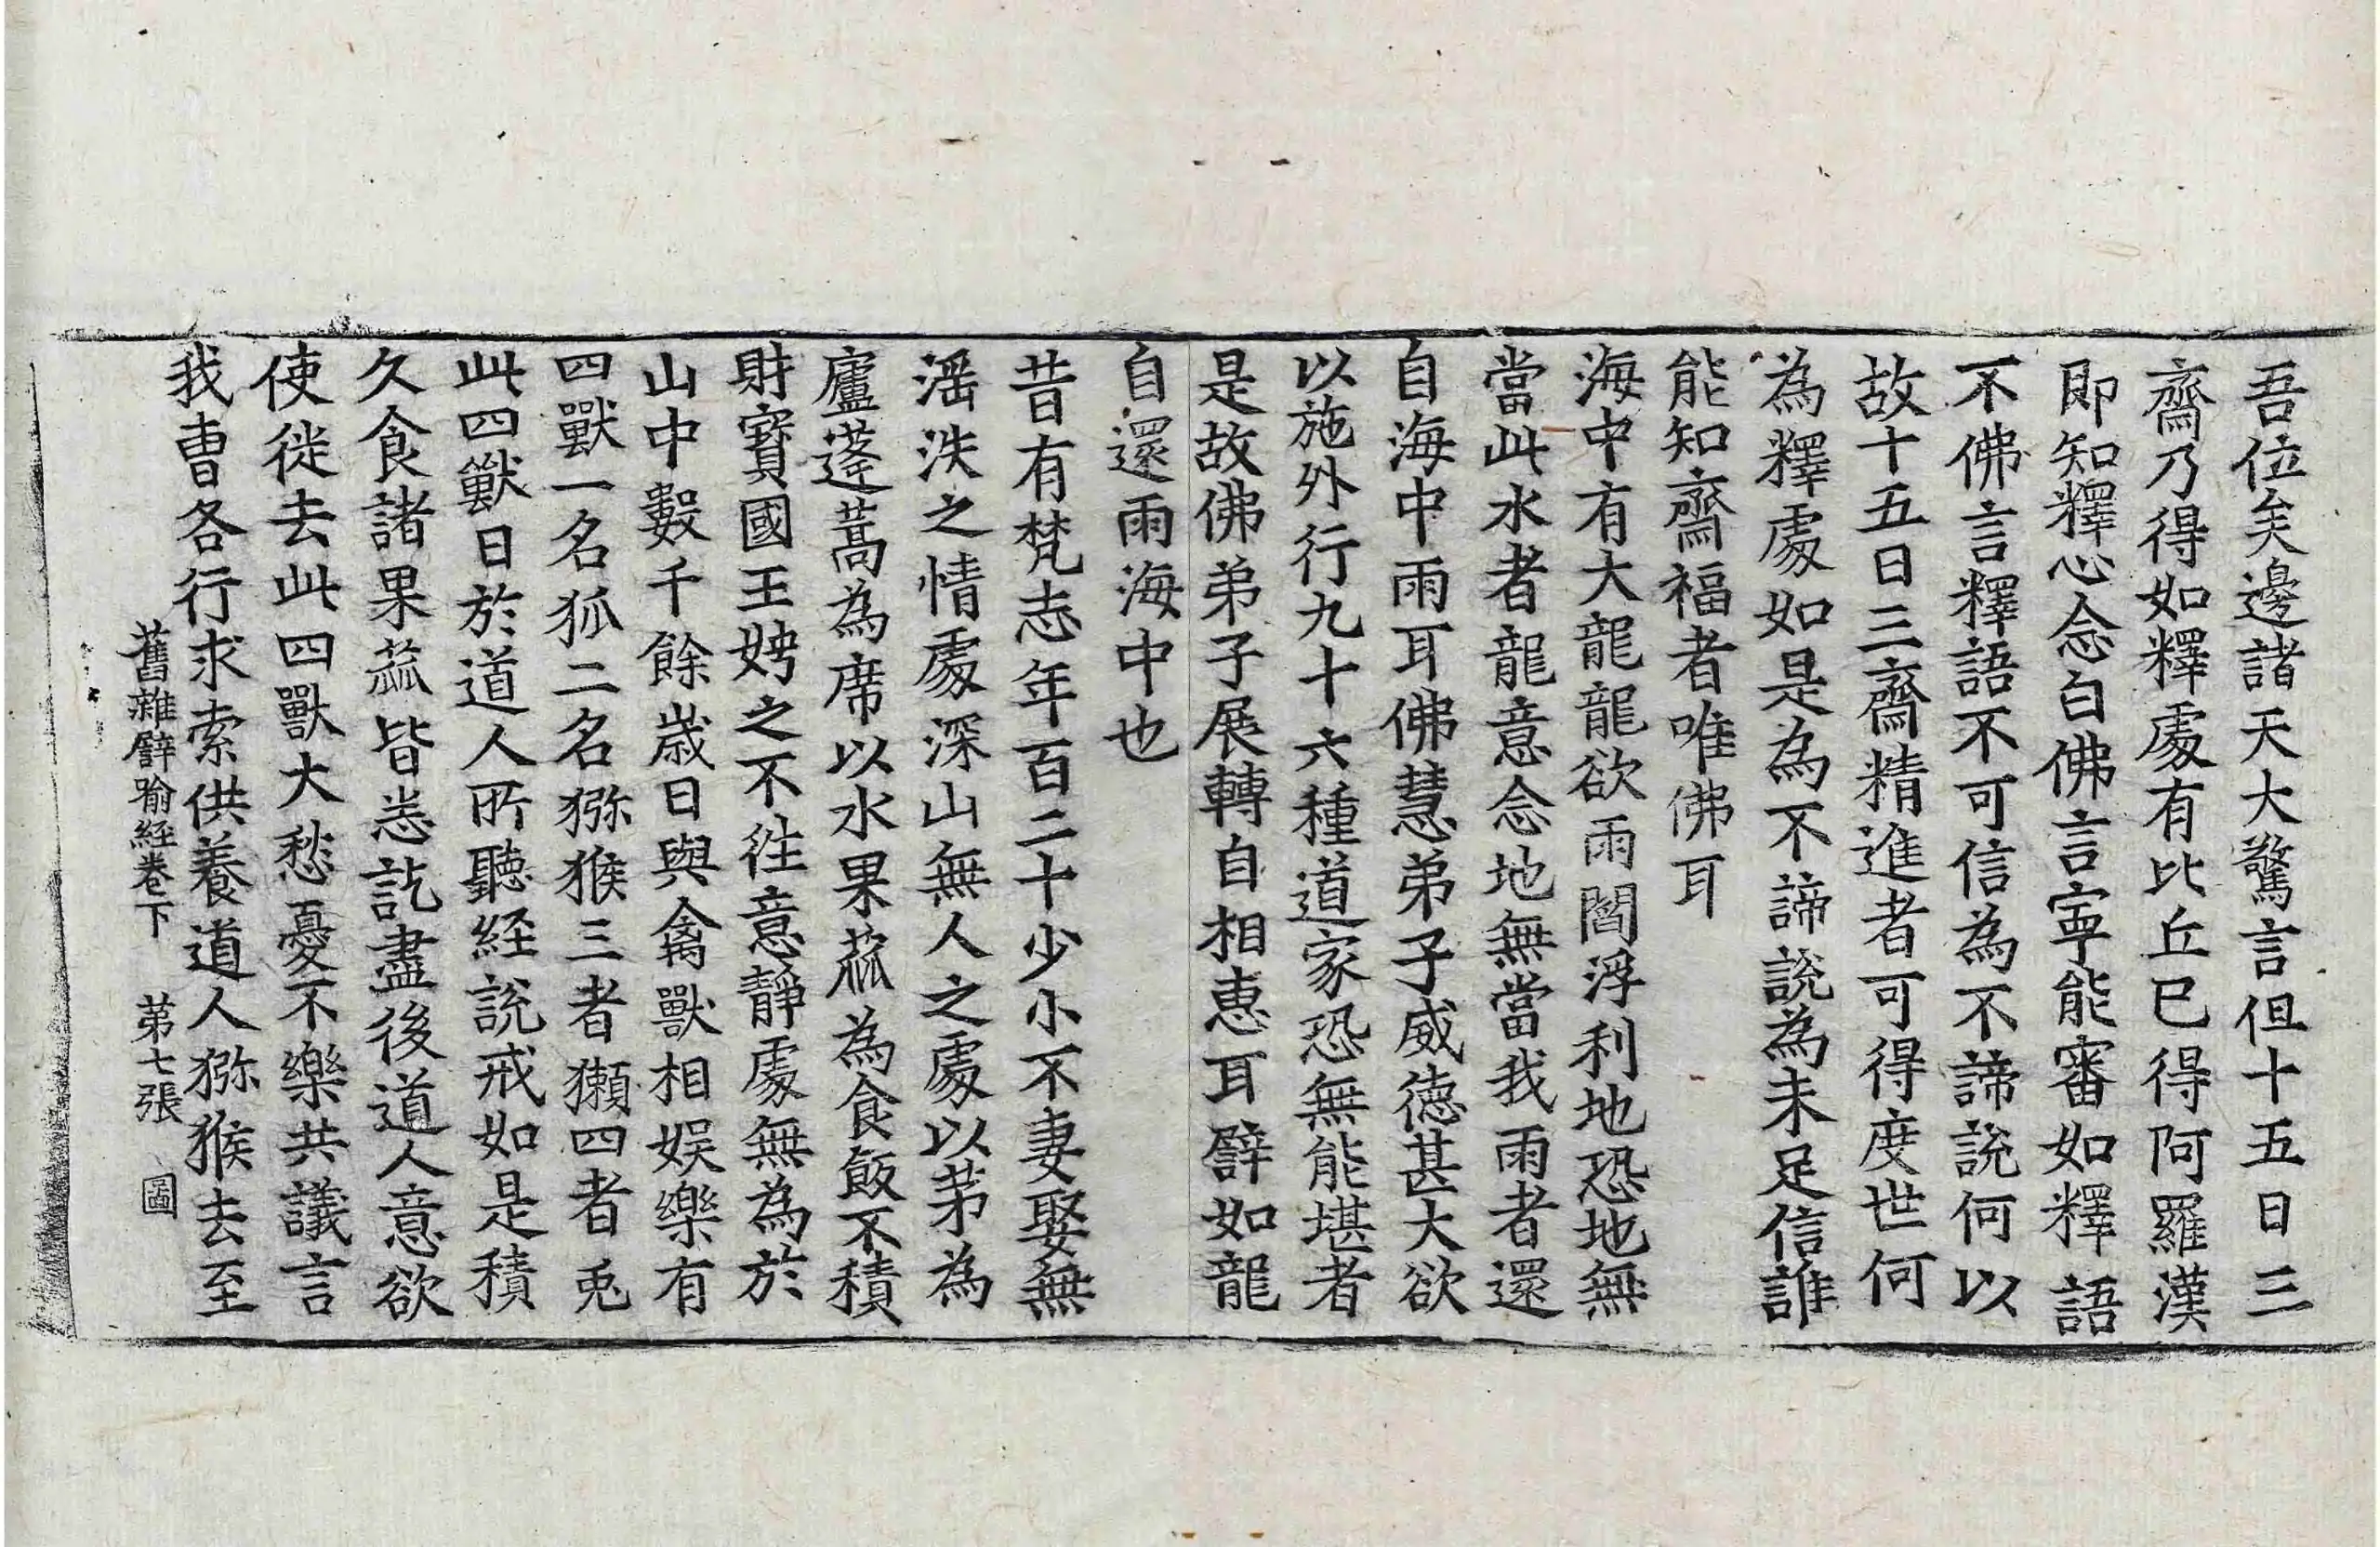 吾位矣邊諸天大驚言但十五日三
齋乃得如釋處有比丘已得阿羅漢
即知釋心念白佛言寧能審如釋語
不佛言釋語不可信為不諦說何以
故十五日三齋精進者可得度世何
為釋處如是為不諦說為未足信誰
能知齋福者唯佛耳
海中有大龍龍欲雨閻浮利地恐地無
當此水者龍意念地無當我雨者還
自海中雨耳佛慧弟子威德甚大欲
以施外行九十六種道家恐無能堪者
是故佛弟子展轉自相惠耳譬如龍
自還雨海中也
昔有梵志年百二十少小不妻娶無
滛泆之情處深山無人之處以茅為
廬蓬蒿為席以水果蓏為食飯不積
財寶國王娉之不往意靜處無為於
山中數千餘歲日與禽獸相娛樂有
四獸一名狐二名猕猴三者獺四者兎
此四獸日於道人所聽経說戒如是積
久食諸果蓏皆悉訖盡後道人意欲
使徙去此四獸大愁憂不樂共議言
我曹各行求索供養道人猕猴去至
舊雜譬喻経卷下 第七張 圖